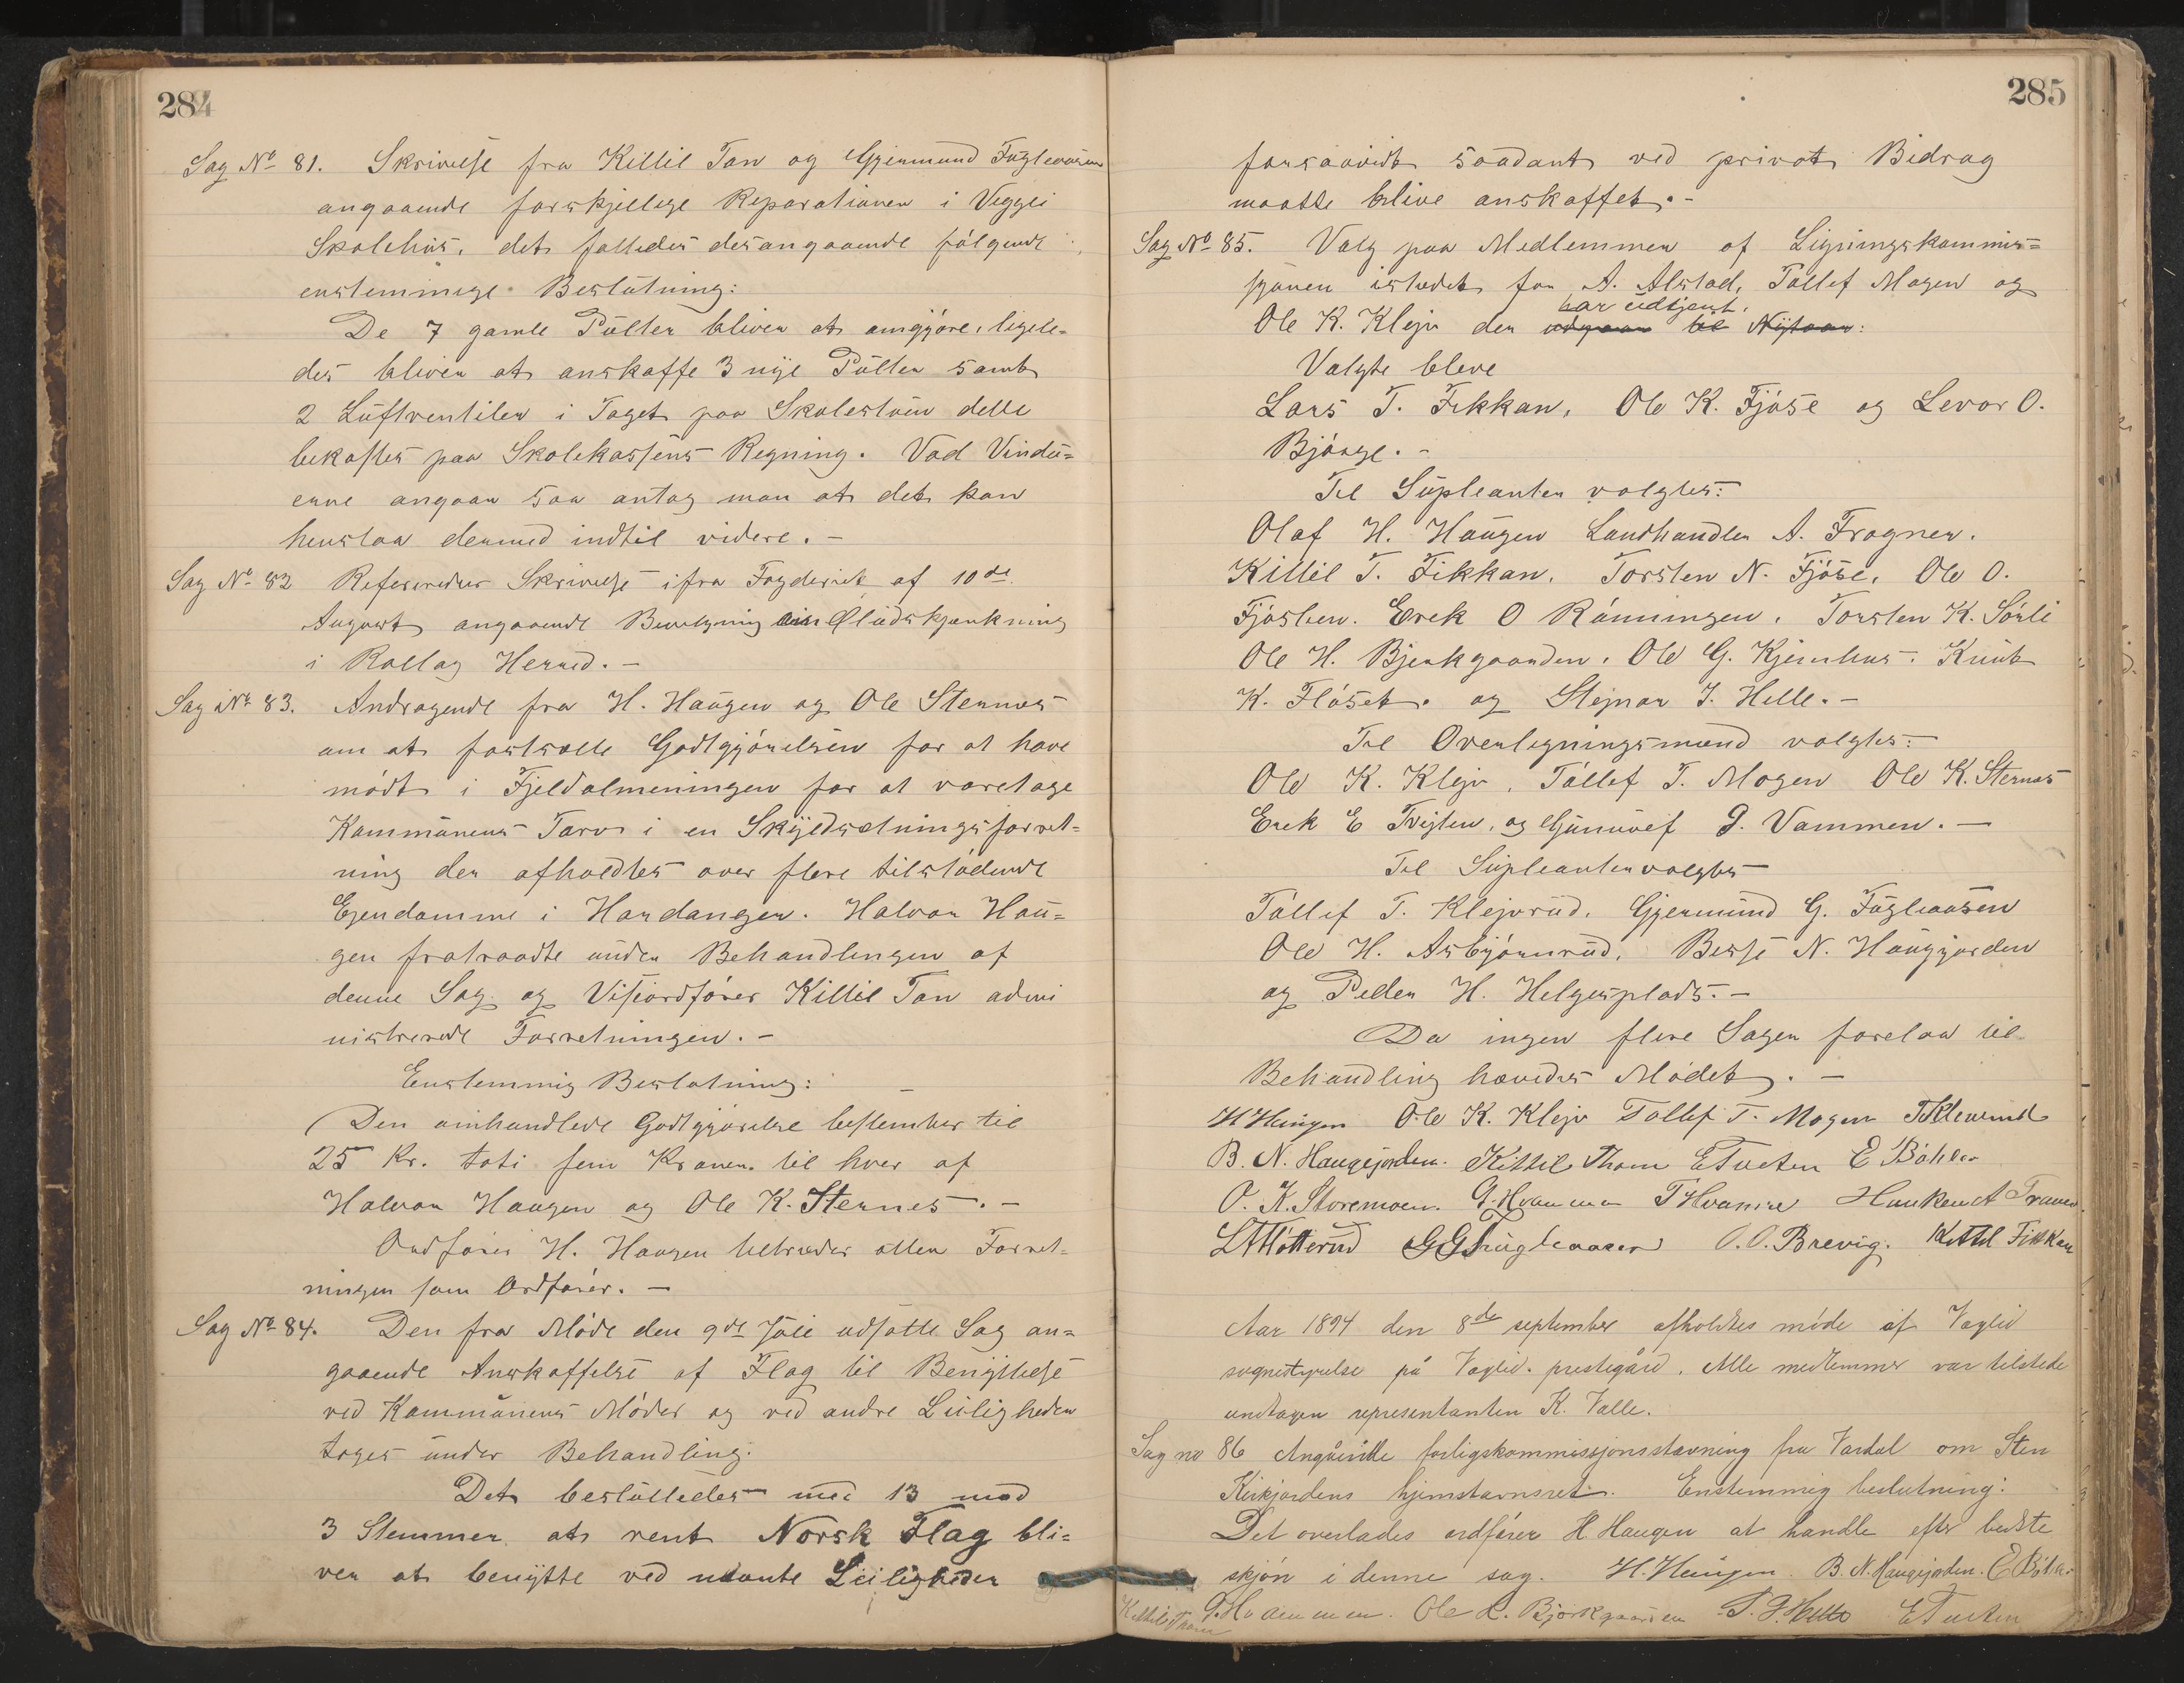 284
Sag No 81. Skrivelse fra Kittil Tan og Gjermund Fuglevaasen
angaaende forskjellige Reparationer i Veggli
Skolehus, det fattedes desangaaende fölgende
enstemmige Beslutning:
De 7 gamle Pulter bliver at omgjöre, ligele-
des bliver at anskaffe 3 nye Pulter samt
2 Luftventiler i Taget paa Skolestuen dette
bekostes paa Skolekassens Regning. Vad Vindu-
erne angaar saa antog man at det kan
henstaa dermed indtil videre. -
Sag No 82 Refereredes Skrivelse ifra Fogderiet af 10de
August angaaende Bevilgning Øludskjænkning
i Rollag Herred. -
Sag No 83. Andragende fra H. Haugen og Ole Sternes
om at fastsætte Godtgjörelsen for at have
mödt i Fjeldalmeningen for at varetage
Kommunens Tarv i en Skyldsætningsforret-
ning der afholdtes over flere tilstödende
Ejendomme i Hardanger. Halvor Hau-
gen fratraadte under Behandlingen af
denne Sag og Viseordförer Kittil Tan admi
nistrerede Forretningen. -
Enstemmig Beslutning:
Den omhandlede Godtgjörelse bestemtes til
25 Kr. toti fem Kroner til hver af
Halvor Haugen og Ole K. Sternes. -
Ordförer H. Haugen tiltræder atter Forret-
ningen som Ordförer. -
Sag No 84. Den fra Möde den 9de Juli udsatte Sag an-
gaaende Anskaffelse af Flag til Benyttelse
ved Kommunens Möder og ved andre Leiligheder
toges under Behandling.
Det besluttedes med 13 mod
3 Stemmer at rent Norsk Flag bli-
ver at benytte ved Leiligheder
285
forsaavidt saadant ved privat Bidrag
maatte blive anskaffet. -
Sag No 85. Valg paa Medlemmer af Ligningskommis-
sjonen istedet for A. Alstad, Tollef Mogen og
har udtjent.
Ole K. Klejv der udgaar til Nytaar:
Valgte bleve
Lars T. Fikkan, Ole K. Fjöse og Levor O.
Bjönge. -
Til Supleanter valgtes:
Olaf H. Haugen Landhandler A. Fragner.
Kittil T. Fikkan. Torsten N. Fjöse, Ole O.
Fjösten. Erek O Rönningen. Torsten K. Sörli
Ole H. Bjerkgaarden. Ole G. Kjemhus. Knut
K. Flöset. og Stejnar J. Helle. -
Til Overligningsmænd valgtes:
Ole K. Klejv, Töllef T. Mogen Ole K. Sternes
Erek E Tvejten, og Gunuleif G. Vammen. -
Til Supleanter valgtes
Töllef T. Klejvrud, Gjermund G. Fuglevaasen
Ole H. Asbjörnrud, Besse N. Haugjorden
og Peder H. Helgesplads. -
Da ingen flere Sager forelaa til
Behandling hævedes Mödet. -
H Haugen Ole K. Klejv Tollef T. Mogen T Klevrud
B. N. Haugejorden. Kittil Thom E Tveten E Böhler
O. K. Storemoen. G. Hvammen T Hvamre
O. O. Brevig. Kettil Fikkan
Aar 1894 den 8de september afholdtes möde af Veglid
sognestyrelse på Veglid prestegård. Alle medlemmer var tilstede
undtagen representanten K. Valle.
Sag no 86 Angåënde forligskommissjonsstevning fra Vardal om Sten
Kirkjordens hjemstavnsret. Enstemmig beslutning:
Det overlades ordförer H. Haugen at handle efter bedste
skjön i denne sag. H. Haugen. B. N. Haugejorden. E Böhler
Kittil Thom G. Hvammen. Ole H. Bjørkgaarden S. J. Helle E Tveten